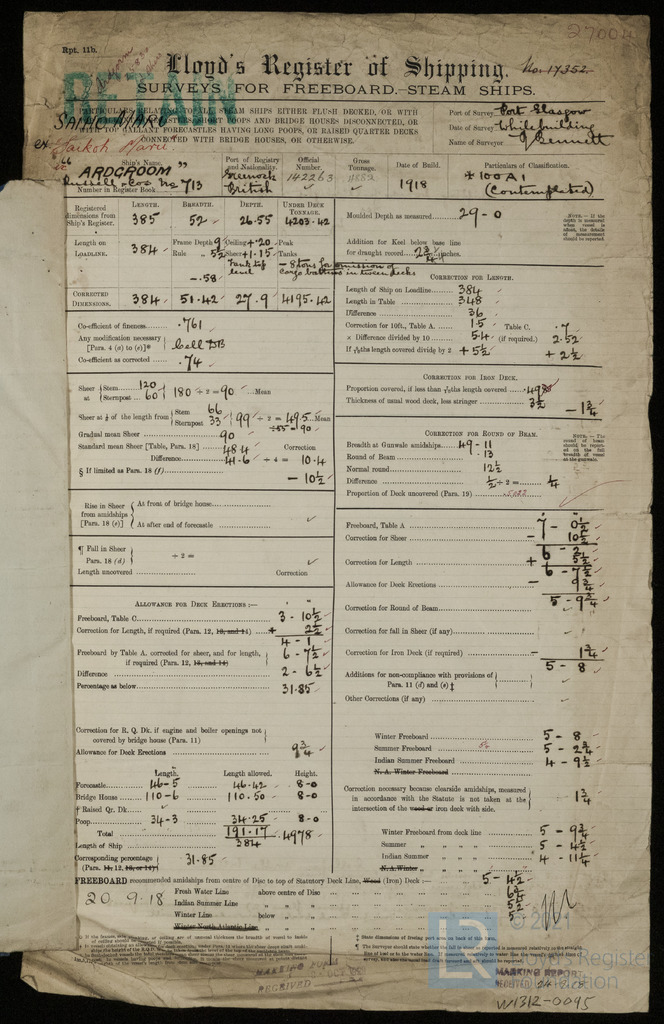 27004
Rpt. 11b.
Lloyd's Register of Shipping.
No. 17352
SURVEYS FOR FREEBOARD.—STEAM SHIPS.
RETAIN
PARTICULARS RELATING TO ALL STEAM SHIPS EITHER FLUSH DECKED, OR WITH
POOPS AND BRIDGE HOUSES DISCONNECTED, OR
WITH TOP GALLANT FORECASTLES HAVING LONG POOPS, OR RAISED QUARTER DECKS
CONNECTED WITH BRIDGE HOUSES, OR OTHERWISE.
Port of Survey Port Glasgow
Date of Survey While building
Name of Surveyor J Bennett
Ship's Name.
"ARDGROOM"
Russell & Co's No 713
Number in Register Book.
Port of Registry and Nationality.
Greenock
British
Official Number.
142263
Gross Tonnage.
Date of Build.
1918
Particulars of Classification.
+ 100 A1
(Contemplated)
Registered dimensions from Ship's Register.
LENGTH. BREADTH. DEPTH. UNDER DECK TONNAGE.
385 52 26.55 4203.42
Length on LOADLINE.
384
Frame Depth 9
Rule 5½
Ceiling + .20
Sheer + 1.15
Peak Tanks
Tank top level
- 8 tons for omission of
cargo battens in tween decks
- .58
CORRECTED DIMENSIONS.
384 51.42 27.9 4195.42
Moulded Depth as measured 29-0
Addition for Keel below base line
for draught record inches.
CORRECTION FOR LENGTH.
Length of Ship on Loadline 384
Length in Table 348
Difference 36
Correction for 10ft., Table A. 1.5 Table C. .7
× Difference divided by 10 5.4 (if required.) 2.52
If 6/10ths length covered divide by 2 + 5½ + 2½
Co-efficient of fineness .761
Any modification necessary
[Para. 4 (a) to (e)]* Cell DB
Co-efficient as corrected .74
CORRECTION FOR IRON DECK.
Proportion covered, if less than 7/10ths length covered
Thickness of usual wood deck, less stringer 3½
- 1¾
Sheer at Stem 120
Sternpost 60
180 ÷ 2 = 90 Mean
Sheer at ⅛ of the length from Stem 66
Sternpost 33
99 ÷ 2 = 49.5 Mean
÷ .55 = 90
Gradual mean Sheer 90
Standard mean Sheer [Table, Para. 18] 48.4 Correction
Difference 41.6 ÷ 4 = 10.4
§ If limited as Para. 18 (f) - 10½
CORRECTION FOR ROUND OF BEAM.
Breadth at Gunwale amidships 49-11
Round of Beam 13
Normal round 12½
Difference ½ ÷ 2 = ¼
Proportion of Deck uncovered (Para. 19) .5022
Rise in Sheer from amidships [Para. 18 (e)]
At front of bridge house
At after end of forecastle
¶ Fall in Sheer
Para. 18 (d) ÷ 2 =
Length uncovered Correction
Freeboard, Table A 7 - 0½
Correction for Sheer - 10½
6 - 2
Correction for Length + 5½
6 - 7½
Allowance for Deck Erections - 9¾
5 - 9¾
Correction for Round of Beam
Correction for fall in Sheer (if any)
Correction for Iron Deck (if required) - 1¾
5 - 8
Additions for non-compliance with provisions of
Para. 11 (d) and (e) ‡
Other Corrections (if any)
ALLOWANCE FOR DECK ERECTIONS:—
Freeboard, Table C 3 - 10½
Correction for Length, if required (Para. 12, 13, and 14) + 2½
4 - 1
Freeboard by Table A, corrected for sheer, and for length,
if required (Para. 12, 13, and 14) 6 - 7½
Difference 2 - 6½
Percentage as below 31.85
Correction for R. Q. Dk. if engine and boiler openings not
covered by bridge house (Para. 11)
Allowance for Deck Erections 9¾
Length. Length allowed. Height.
Forecastle 46-5 46.42 8-0
Bridge House 110-6 110.50 8-0
† Raised Qr. Dk.
Poop 34-3 34.25 8-0
Total 191.17 .4978
Length of Ship 384
Corresponding percentage 31.85
Winter Freeboard 5 - 8
Summer Freeboard 5 - 2¾
Indian Summer Freeboard 4 - 9½
N. A. Winter Freeboard
Correction necessary because clearside amidships, measured
in accordance with the Statute is not taken at the
intersection of the wood or iron deck with side. 1¾
Winter Freeboard from deck line 5 - 9¾
Summer 5 - 4½
Indian Summer 4 - 11¼
N. A. Winter
FREEBOARD recommended amidships from centre of Disc to top of Statutory Deck Line, Wood (Iron) Deck 5 - 4½
20.9.18
Fresh Water Line above centre of Disc
Indian Summer Line 5¼
Winter Line below
Winter North Atlantic Line
MARKING REPORT
RECEIVED
© 2021
Lloyd's Register
Foundation
W1312-0095